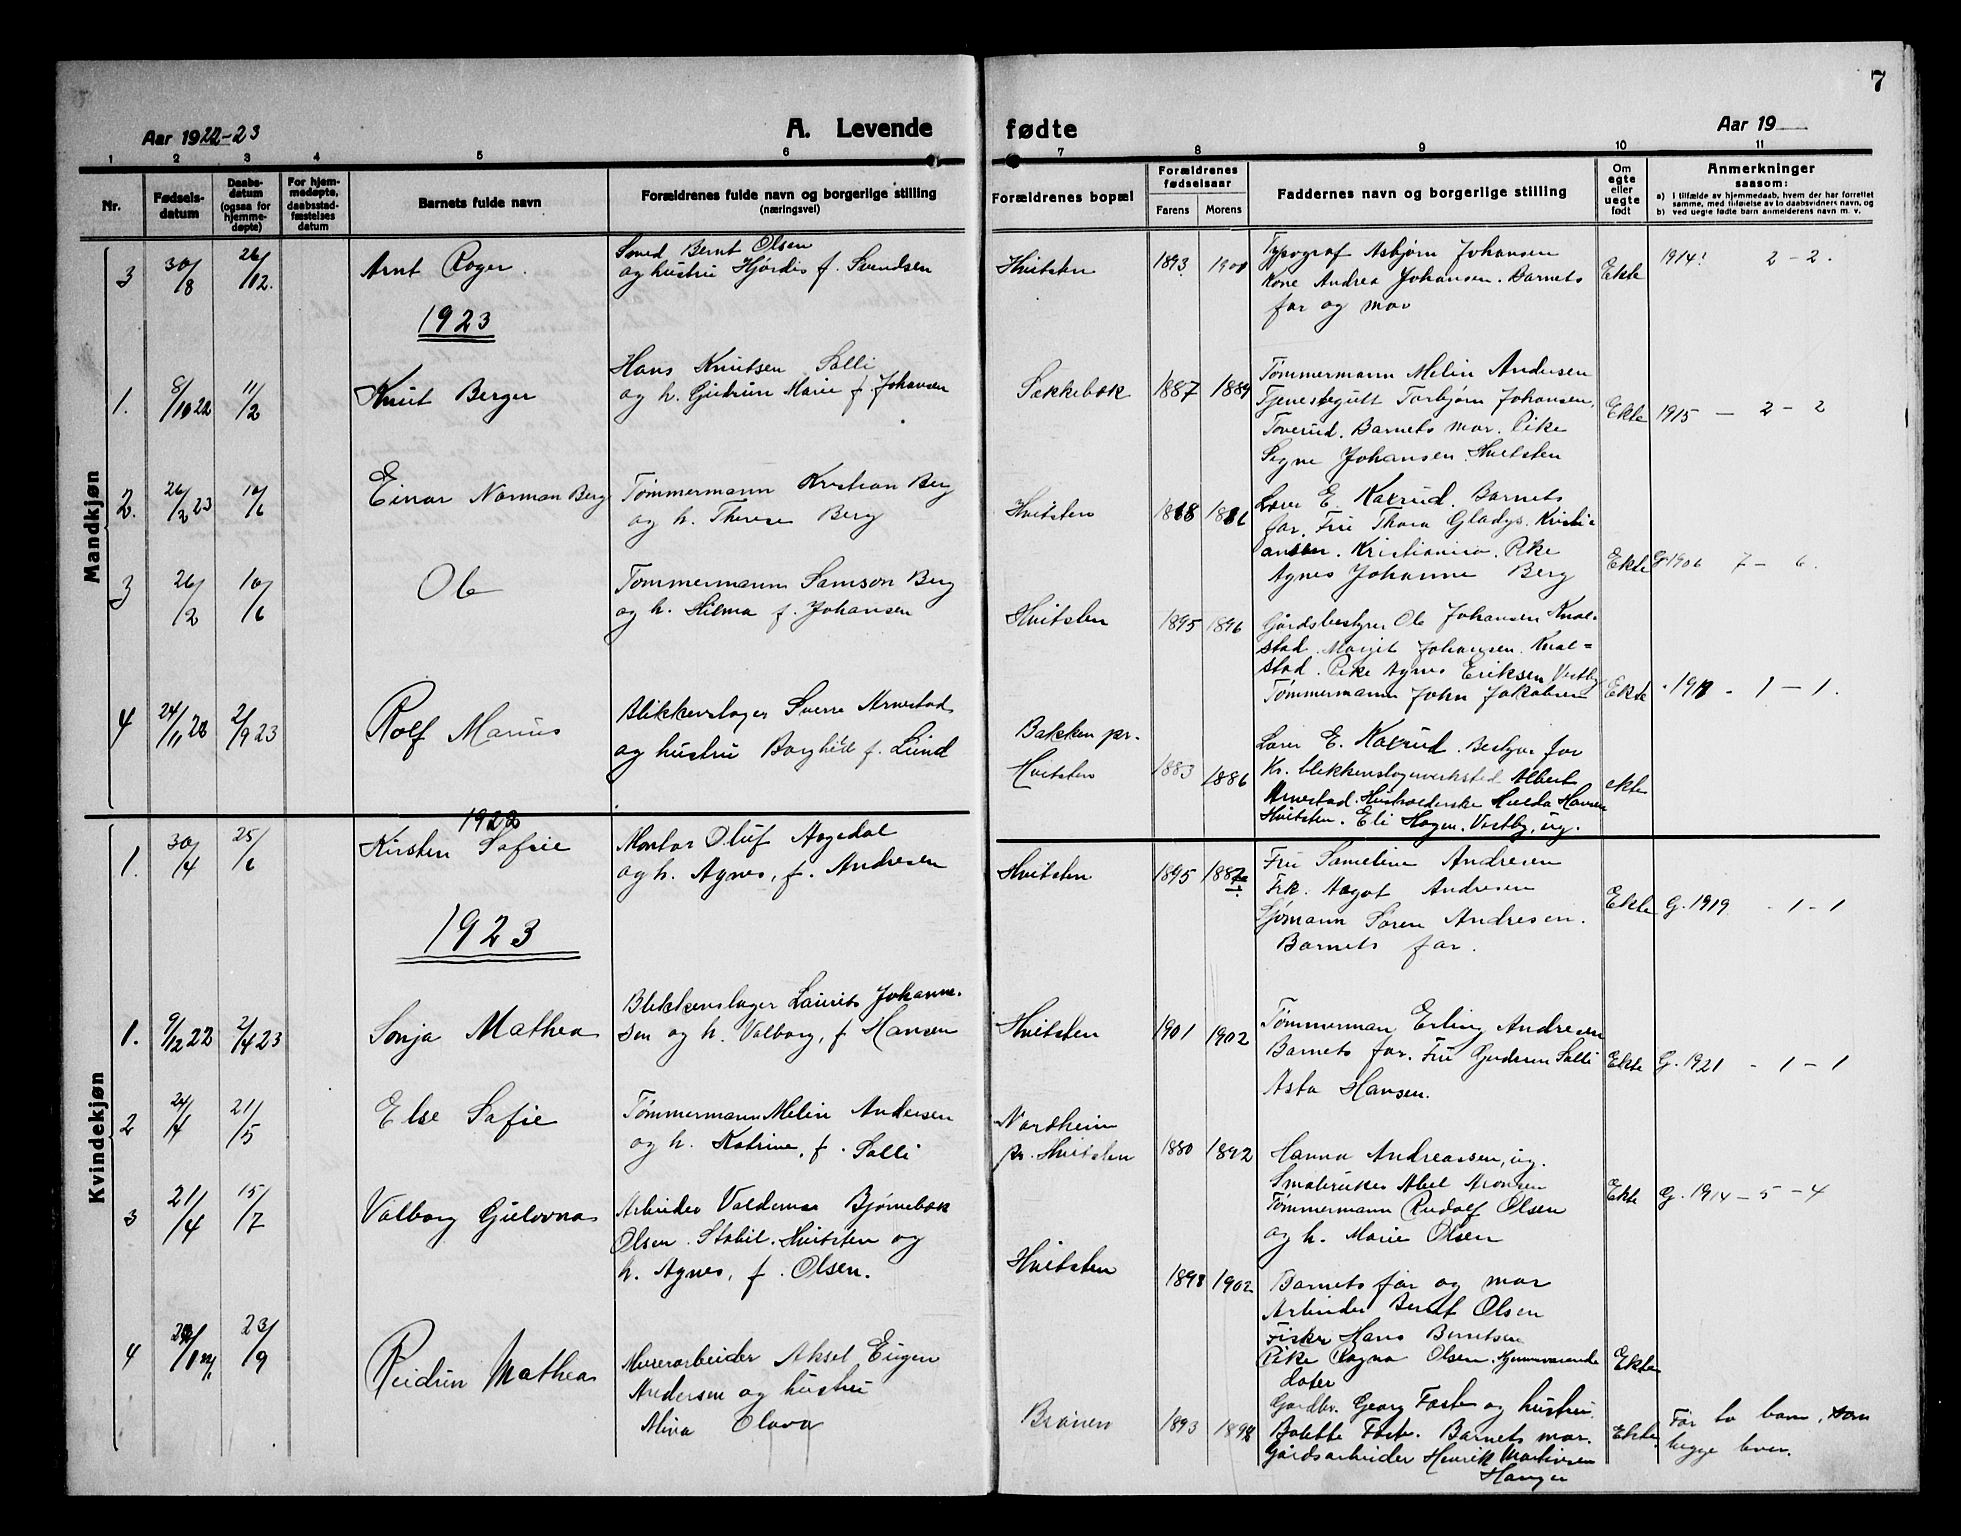 7
Aar 1922-23
A. Levende
fødte
Aar 19
1 2 3 4 5 6 7 8 9 10 11
Nr.
Fødsels-
datum
Daabs-
datum
(ogsaa for
hjemme-
døpte)
For hjem-
medøpte,
daabsstad-
fæstelses
datum
Barnets fulde navn
Forældrenes fulde navn og borgerlige stilling
(næringsvei)
Forældrenes bopæl
Forældrenes
fødselsaar
Farens Morens
Faddernes navn og borgerlige stilling
Om
egte
eller
uegte
født
Anmerkninger
saasom:
a) i tilfælde av hjemmedaab, hvem der har forrettet
samme, med tilføielse av to daabsvidners navn, og
b) ved uegte fødte barn anmelderens navn m. v.
Mandkjøn
3 30/8 26/12. Arnt Roger.
Smed Bernt Olsen
og hustru Hjørdis f. Svendsen
Hvitsten 1893 1901
Typograf Asbjørn Johansen
Kone Andrea Johansen. Barnets
far og mor
Ekte 1914! 2-2.
1923
1. 8/10 22 11/2 Knut Berger
Hans Knutsen Solli
og h. Gudrun Marie f. Johansen
Sækkebæk 1887 1889
Tømmermann Melin Andersen
Tjenestegutt Torbjørn Johansen,
Toverud. Barnets mor. Pike
Signe Johansen. Hvitsten
Ekte 1915 - 2-2
2. 26/2 23 10/6 Einar Norman Berg
Tømmermann Kristian Berg
og h. Therese Berg
Hvitsten
Lærer E. Kaxrud. Barnets
far. Fru Thora Gladys Kristi-
ansen. Kristiania. Pike
Agnes Johanne Berg
Ekte G. 1906 7-6.
3 26/2 10/6 Ole
Tømmermann Samson Berg
og h. Hilma f. Johansen
Hvitsten 1895 1896
Gårdsbestyrer Ole Johansen Knal-
stad. Margit Johansen. Knal=
stad. Pike Agnes Eriksen Vestby
Tømmermann John Jakobsen
Ekte - 1-1.
4 24/11 22 2/9 23 Rolf Marius
Blikkenslager Sverre Arnestad
og hustru Borghild f. Lund
Bakken pr.
Hvitsten 1883 1886
Lærer E. Kaxrud. Bestyrer for
Kr. blikkenslagerverksted Albert
Arnestad. Husholderske Hulda Hansen
Hvitsten. Eli Hagen. Vestby, ug.
ekte
Kvindekjøn
1922
1. 30/4 25/6 Kirsten Sofie
Montør Oluf Aagedal
og h. Agnes, f. Andresen
Hvitsten 1895
Fru Sameline Andresen
Frk. Aagot Andresen
Sjømann Søren Andresen.
Barnets far.
Ekte G. 1919 - 1-1
1923
1. 9/12 22 2/4 23 Sonja Mathea
Blikkenslager Laurits Johanne-
sen og h. Valborg, f Hansen
Hvitsten 1901 1902
Tømmerman Erling Andresen
Barnets far. Fru Gudrun Solli
Asta Hansen.
Ekte G. 1921 - 1-1
2 24/4 21/5 Else Sofie
Tømmermann Melin Andersen
og h. Katrine, f. Solli
Nordheim
pr. Hvitsten 1880 1892
Hanna Andreassen, ug.
Småbruker Abel Aronsen
Tømmermann Rudolf Olsen
og h. Marie Olsen
Ekte G. 1914-5-4
3 21/4 15/7 Valborg Gulovna
Arbeider Valdemar Bjørnebæk
Olsen. Stabil. Hvitsten og
h. Agnes, f. Olsen.
Hvitsten 1898 1902
Barnets far og mor
Arbeider Bernt Olsen
Fisker Hans Berntsen
Pike Ragna Olsen. Hjemmeværende
dater
Ekte
4 23/9 Reidun Mathea
Murerarbeider Aksel Eugen
Andersen og hustru
Alvia Olava
Brønen 1893 1898
Gårdbr. Georg Foste og hustru.
Bolette Foste. Barnets mor.
Gårdsarbeider Henrik Martinsen
Hauger
Ekte. Før to barn, som
begge lever.